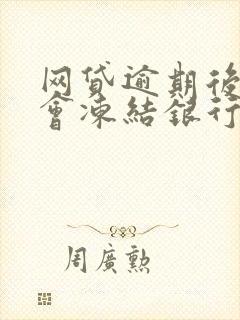 网贷逾期後
會凍結銀行
周廣勲